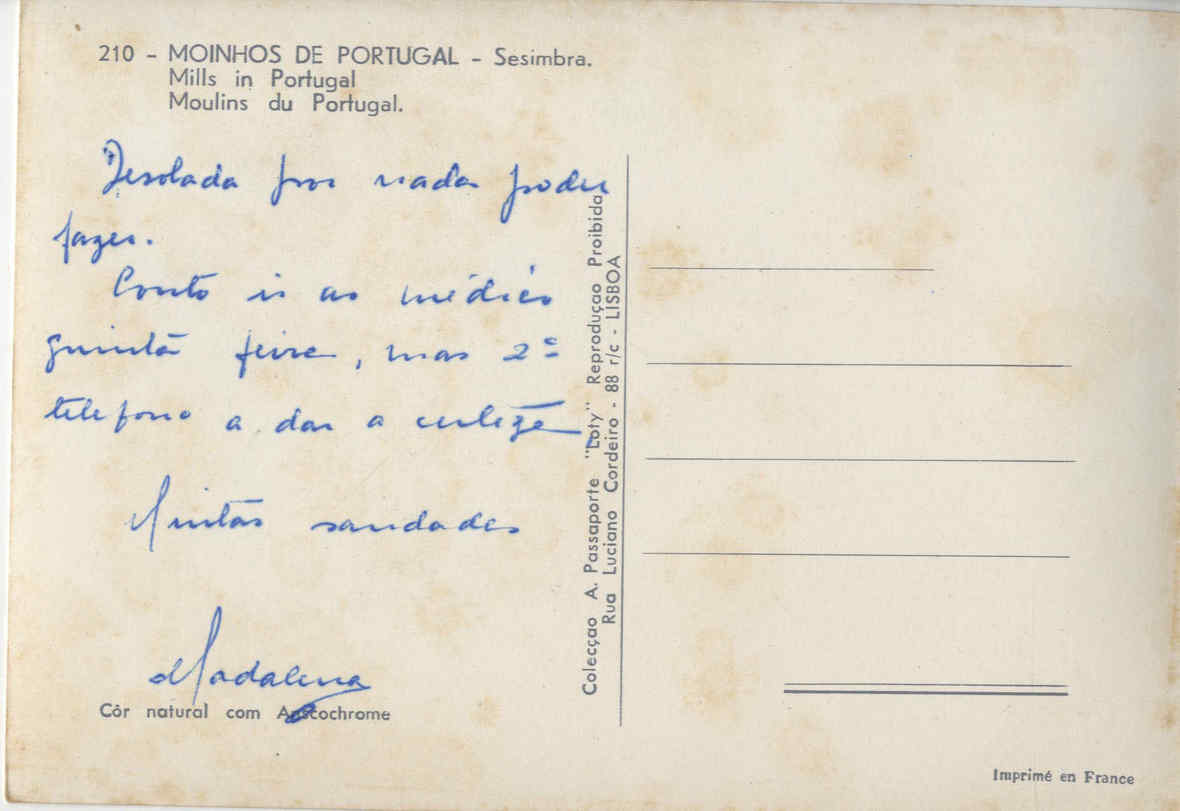 210 - MOINHOS DE PORTUGAL - Sesimbra.
Mills in Portugal
Moulins du Portugal.
Desolada por nada poder
fazer.
Conto ir ao médico
quinta feira, mas 2ª
telefono a dar a certeza
Muitas saudades
Madalena
Côr natural com Anscochrome
Colecção A. Passaporte "Loty" Reprodução Proibida
Rua Luciano Cordeiro - 88 r/c - LISBOA
Imprimé en France